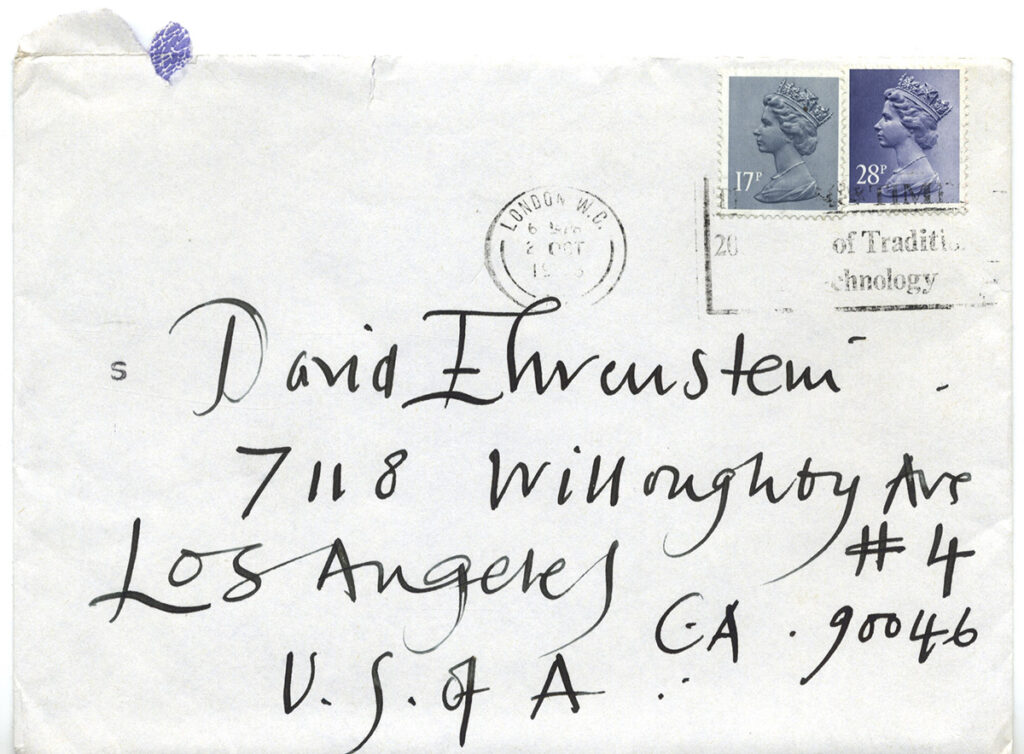 17P 28P
LONDON W.C.
2 OCT
20 of Traditi
chnology
S
David Ehrenstein
7118 Willoughby Ave
#4
Los Angeles
CA. 90046
U.S. of A